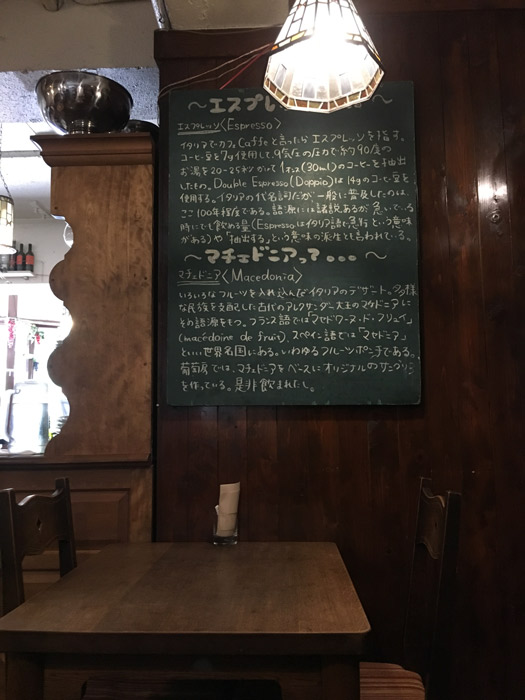 ～エスプレ
エスプレッソ〈Espresso〉
イタリアでカフェCaffeと言ったらエスプレッソを指す。
コーヒー豆を7g使用して、9気圧の圧力で約90度の
お湯を20-25秒かけて1オンス(30ml)のコーヒーを抽出
したもの。Double Espresso(Doppio)は14gのコーヒー豆を
使用する。イタリアの代名詞だが一般に普及したのは、
ここ100年程度である。語源には諸説あるが急いでいる
時にでも飲める量(Espressoはイタリア語で急行という意味
がある)や「抽出する」という意味の派生とも言われている。
～マチェドニアって...～
マチェドニア〈Macedonia〉
いろいろなフルーツを入れ込んだイタリアのデザート。多様
な民族を支配した古代のアレクサンダー大王のマケドニアに
その語源をもつ。フランス語では「マセドワーヌ・ド・フリュイ」
(macédoine de fruit)、スペイン語では「マセドニア」
といい世界各国にある。いわゆるフルーツポンチである。
葡萄房では、マチェドニアをベースにオリジナルのサングリア
を作っている。是非飲まれたし。